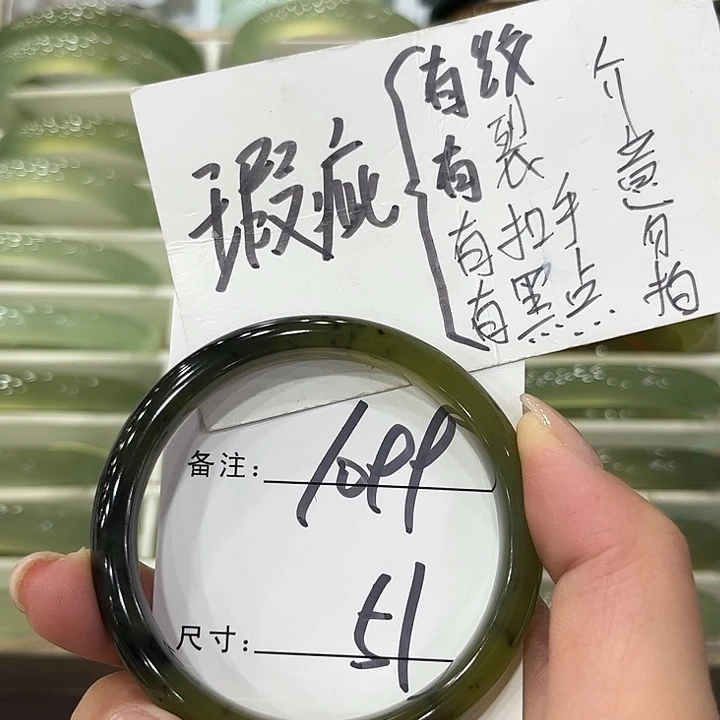 瑕疵
有纹
有裂
有拉手
有黑点
介意勿拍
备注: 1099
尺寸: 51